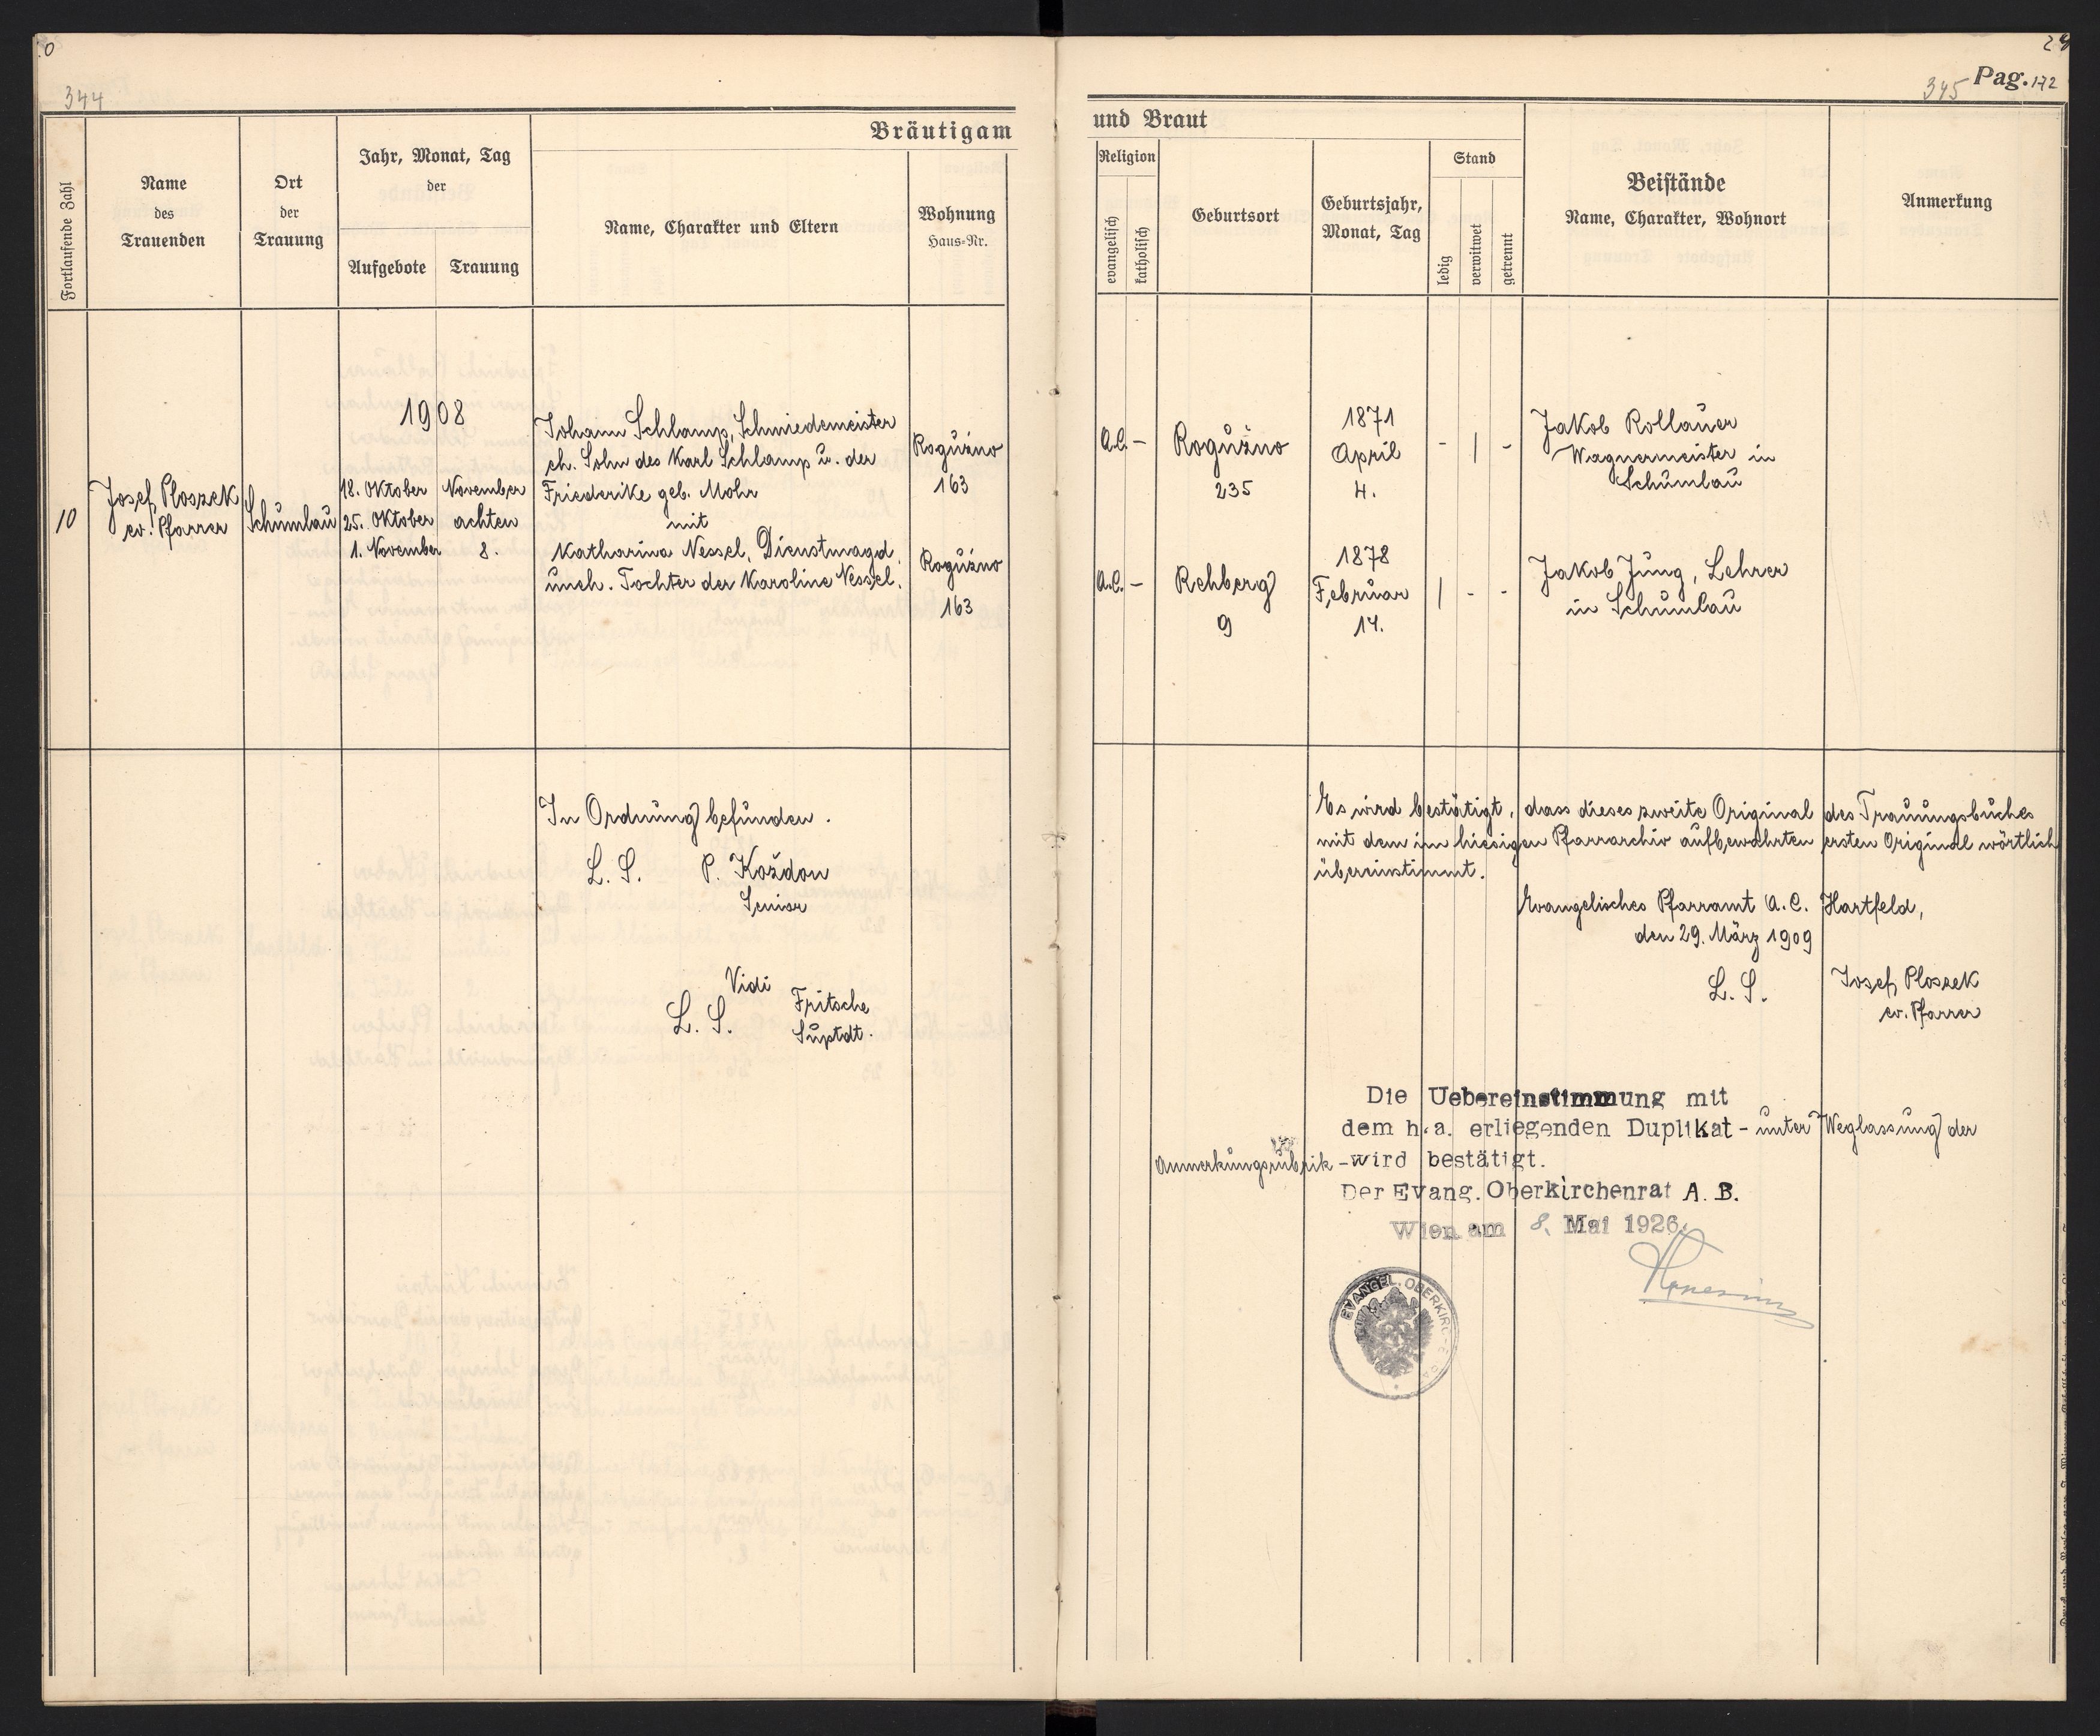 344
345 Pag. 172
Bräutigam
und Braut
Fortlaufende Zahl
Name
des
Trauenden
Ort
der
Trauung
Jahr, Monat, Tag
der
Aufgebote
Trauung
Name, Charakter und Eltern
Wohnung
Haus-Nr.
Religion
evangelisch
katholisch
Geburtsort
Geburtsjahr,
Monat, Tag
Stand
ledig
verwitwet
getrennt
Beistände
Name, Charakter, Wohnort
Anmerkung
10
Josef Ploszek
ev. Pfarrer
Schumlau
1908
18. Oktober
25. Oktober
1. November
November
achten
8.
Johann Schlamp, Schmiedemeister
eh. Sohn des Karl Schlamp u. der
Friederike geb. Mohr
mit
Katharina Nessel, Dienstmagd,
uneh. Tochter der Karoline Nessel.
Roguźno
163
Roguźno
163
A.C. -
Roguźno
235
1871
April
4.
- | -
Jakob Rollauer
Wagnermeister in
Schumlau
A.C. -
Rehberg
9
1878
Februar
14.
| - -
Jakob Jung, Lehrer
in Schumlau
In Ordnung befunden.
L. S. P. Koždon
Senior
Vidi
L. S. Fritsche
Suptdt.
Es wird bestätigt, dass dieses zweite Original des Trauungsbuches
mit dem im hiesigen Pfarrarchiv aufbewahrten ersten Original wörtlich
übereinstimmt.
Evangelisches Pfarramt A. C. Hartfeld,
den 29. März 1909
L. S. Josef Ploszek
ev. Pfarrer
Die Uebereinstimmung mit
dem h.a. erliegenden Duplikat - unter Weglassung der
Anmerkungsrubrik - wird bestätigt.
Der Evang. Oberkirchenrat A. B.
Wien am 8. Mai 1926.
EVANGEL. OBERKIRCHE